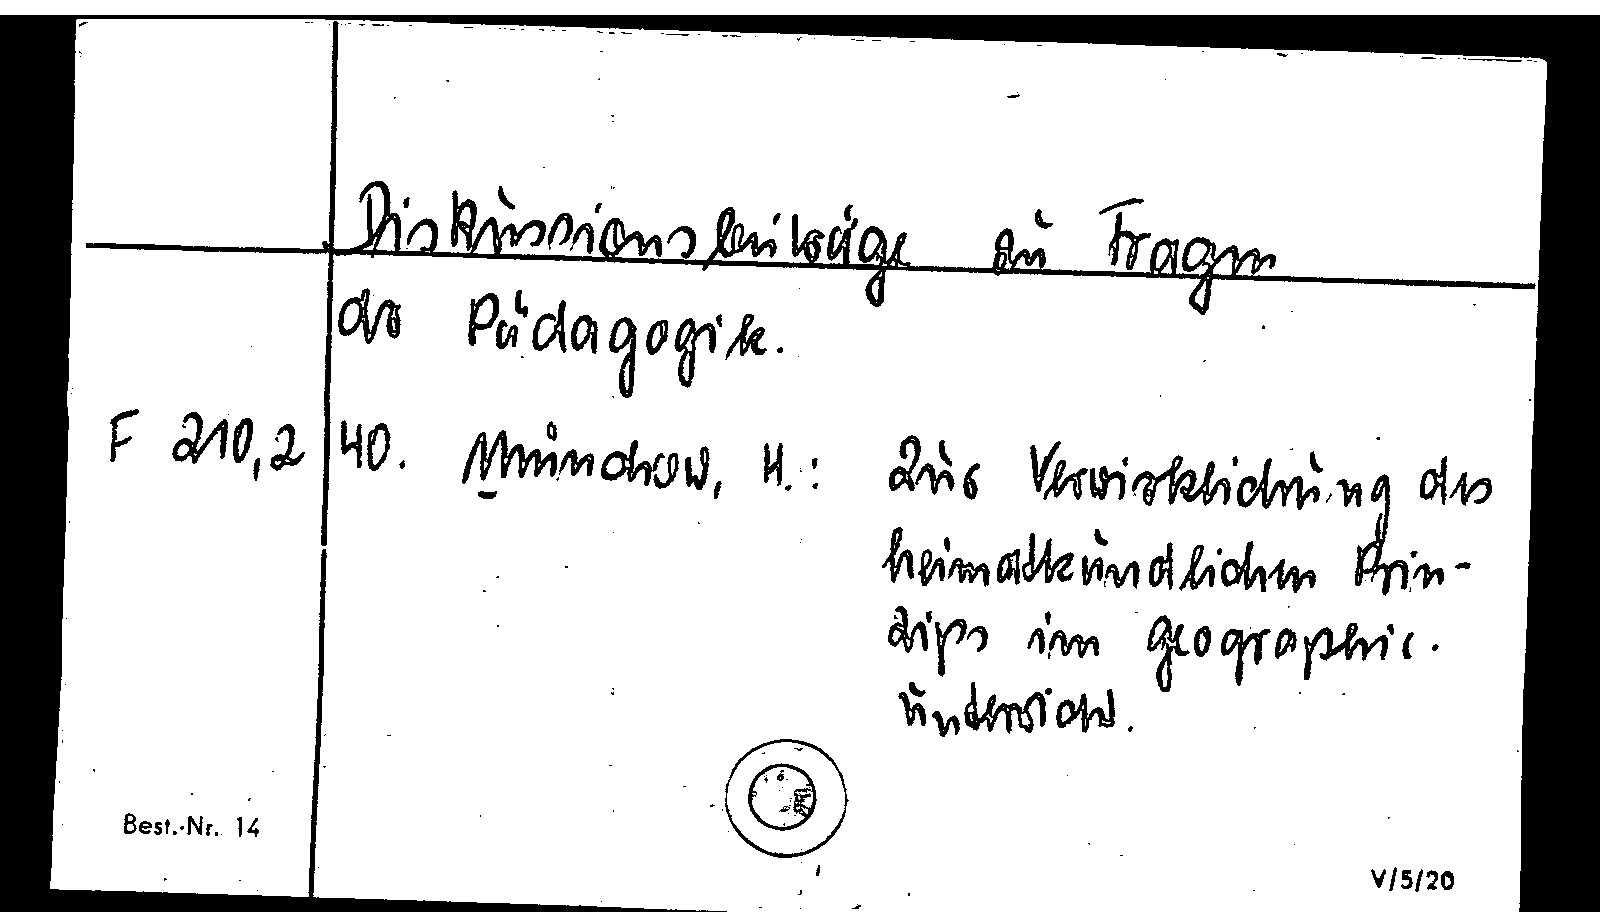 Diskussionsbeiträge zu Fragen
der Pädagogik.
F 210,2 40. Münchow, H.: Zur Verwirklichung des
heimatkundlichen Prin-
zips im Geographie.
unterricht.
Best.-Nr. 14
V/5/20